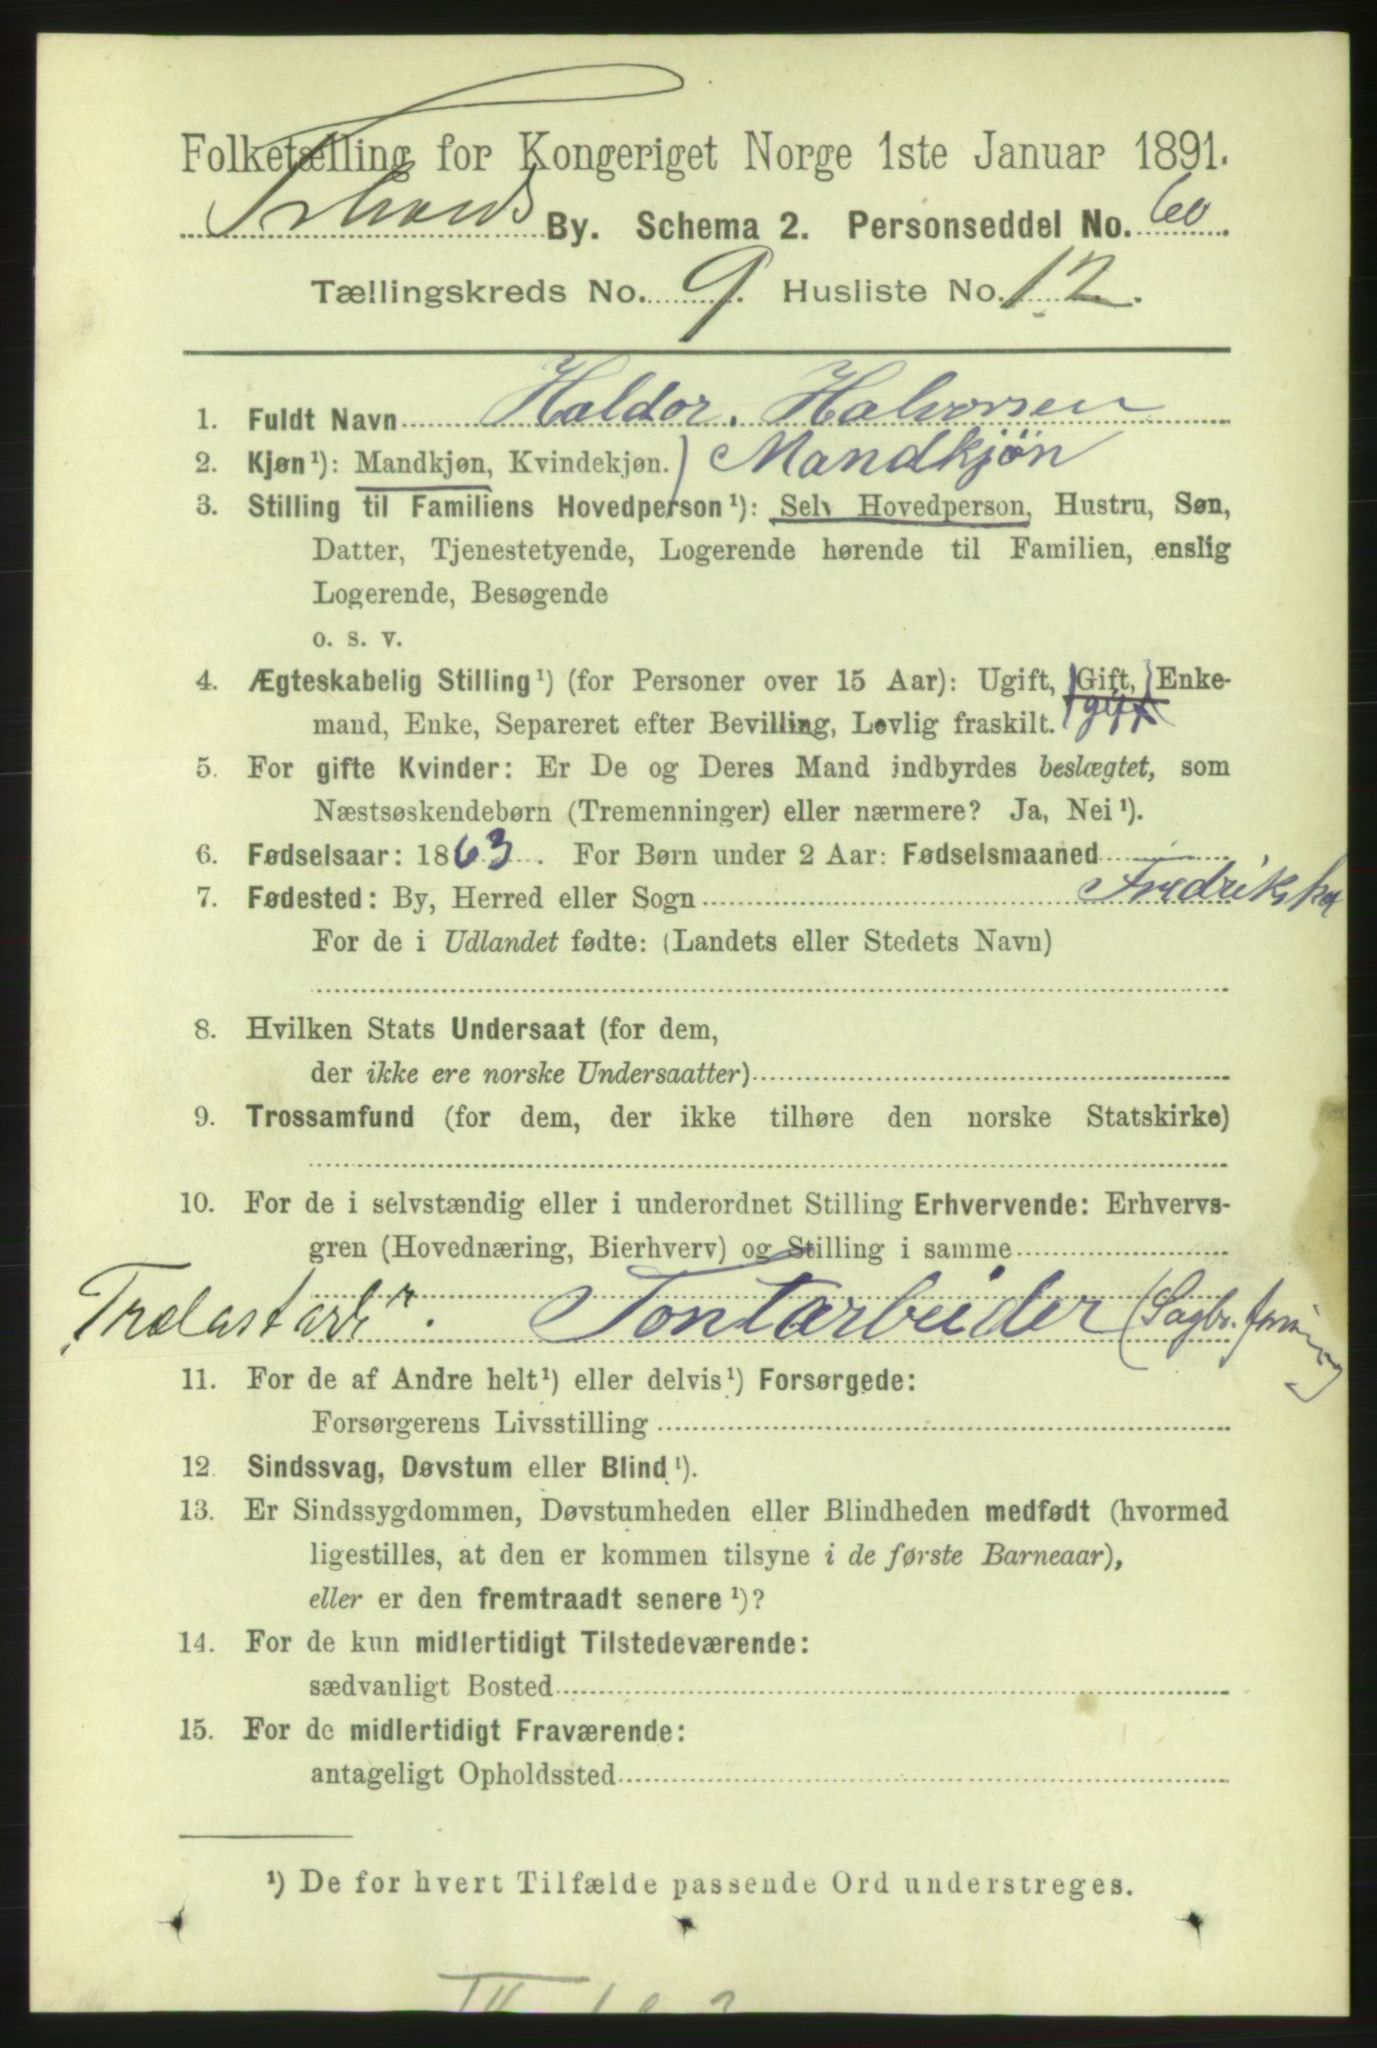 Folketælling for Kongeriget Norge 1ste Januar 1891.
By. Schema 2. Personseddel No. 60.
Tællingskreds No. 9. Husliste No. 12.
1. Fuldt Navn Haldor. Halvorsen
2. Kjøn¹): Mandkjøn, Kvindekjøn. Mandkjøn
3. Stilling til Familiens Hovedperson¹): Selv Hovedperson, Hustru, Søn,
Datter, Tjenestetyende, Logerende hørende til Familien, enslig
Logerende, Besøgende
o. s. v.
4. Ægteskabelig Stilling¹) (for Personer over 15 Aar): Ugift, Gift, Enke-
mand, Enke, Separeret efter Bevilling, Lovlig fraskilt. gift
5. For gifte Kvinder: Er De og Deres Mand indbyrdes beslægtet, som
Næstsøskendebørn (Tremenninger) eller nærmere? Ja, Nei¹).
6. Fødselsaar: 1863. For Børn under 2 Aar: Fødselsmaaned
7. Fødested: By, Herred eller Sogn
For de i Udlandet fødte: (Landets eller Stedets Navn)
8. Hvilken Stats Undersaat (for dem,
der ikke ere norske Undersaatter)
9. Trossamfund (for dem, der ikke tilhøre den norske Statskirke)
10. For de i selvstændig eller i underordnet Stilling Erhvervende: Erhvervs-
gren (Hovednæring, Bierhverv) og Stilling i samme
Trælastarbr. Tontarbeider (Sagbr.
11. For de af Andre helt¹) eller delvis¹) Forsørgede:
Forsørgerens Livsstilling
12. Sindssvag, Døvstum eller Blind¹).
13. Er Sindssygdommen, Døvstumheden eller Blindheden medfødt (hvormed
ligestilles, at den er kommen tilsyne i de første Barneaar),
eller er den fremtraadt senere¹)?
14. For de kun midlertidigt Tilstedeværende:
sædvanligt Bosted
15. For de midlertidigt Fraværende:
antageligt Opholdssted
¹) De for hvert Tilfælde passende Ord understreges.